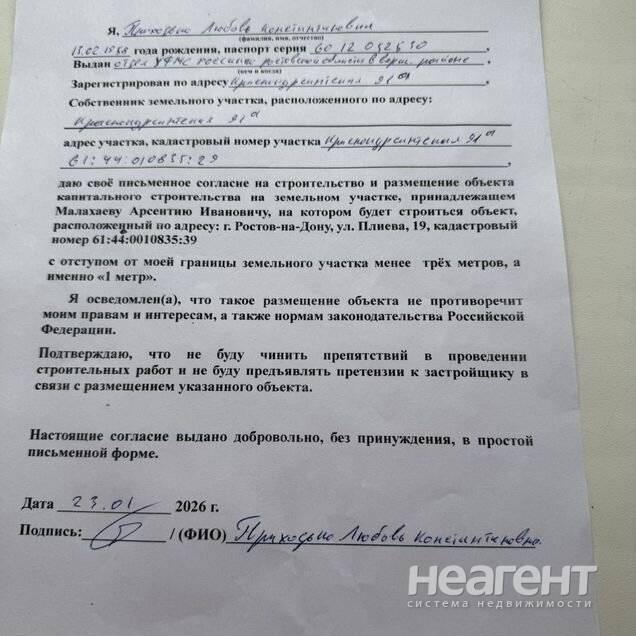 Я, Приходько Любовь Константиновна
(фамилия, имя, отчество)
13.02.1958 года рождения, паспорт серия 60 12 032630,
Выдан отдел УФМС России по Ростовской области в Ворош. районе
(кем и когда)
Зарегистрирован по адресу Краснодрсителская 91а
Собственник земельного участка, расположенного по адресу:
91а
адрес участка, кадастровый номер участка 91а
61:44:010835:29,
даю своё письменное согласие на строительство и размещение объекта
капитального строительства на земельном участке, принадлежащем
Малахаеву Арсентию Ивановичу, на котором будет строиться объект,
расположенный по адресу: г. Ростов-на-Дону, ул. Плиева, 19, кадастровый
номер 61:44:0010835:39
с отступом от моей границы земельного участка менее трёх метров, а
именно «1 метр».
Я осведомлен(а), что такое размещение объекта не противоречит
моим правам и интересам, а также нормам законодательства Российской
Федерации.
Подтверждаю, что не буду чинить препятствий в проведении
строительных работ и не буду предъявлять претензии к застройщику в
связи с размещением указанного объекта.
Настоящие согласие выдано добровольно, без принуждения, в простой
письменной форме.
Дата 23.01 2026 г.
Подпись: / (ФИО) Приходько Любовь Константиновна.
неагент
система недвижимости